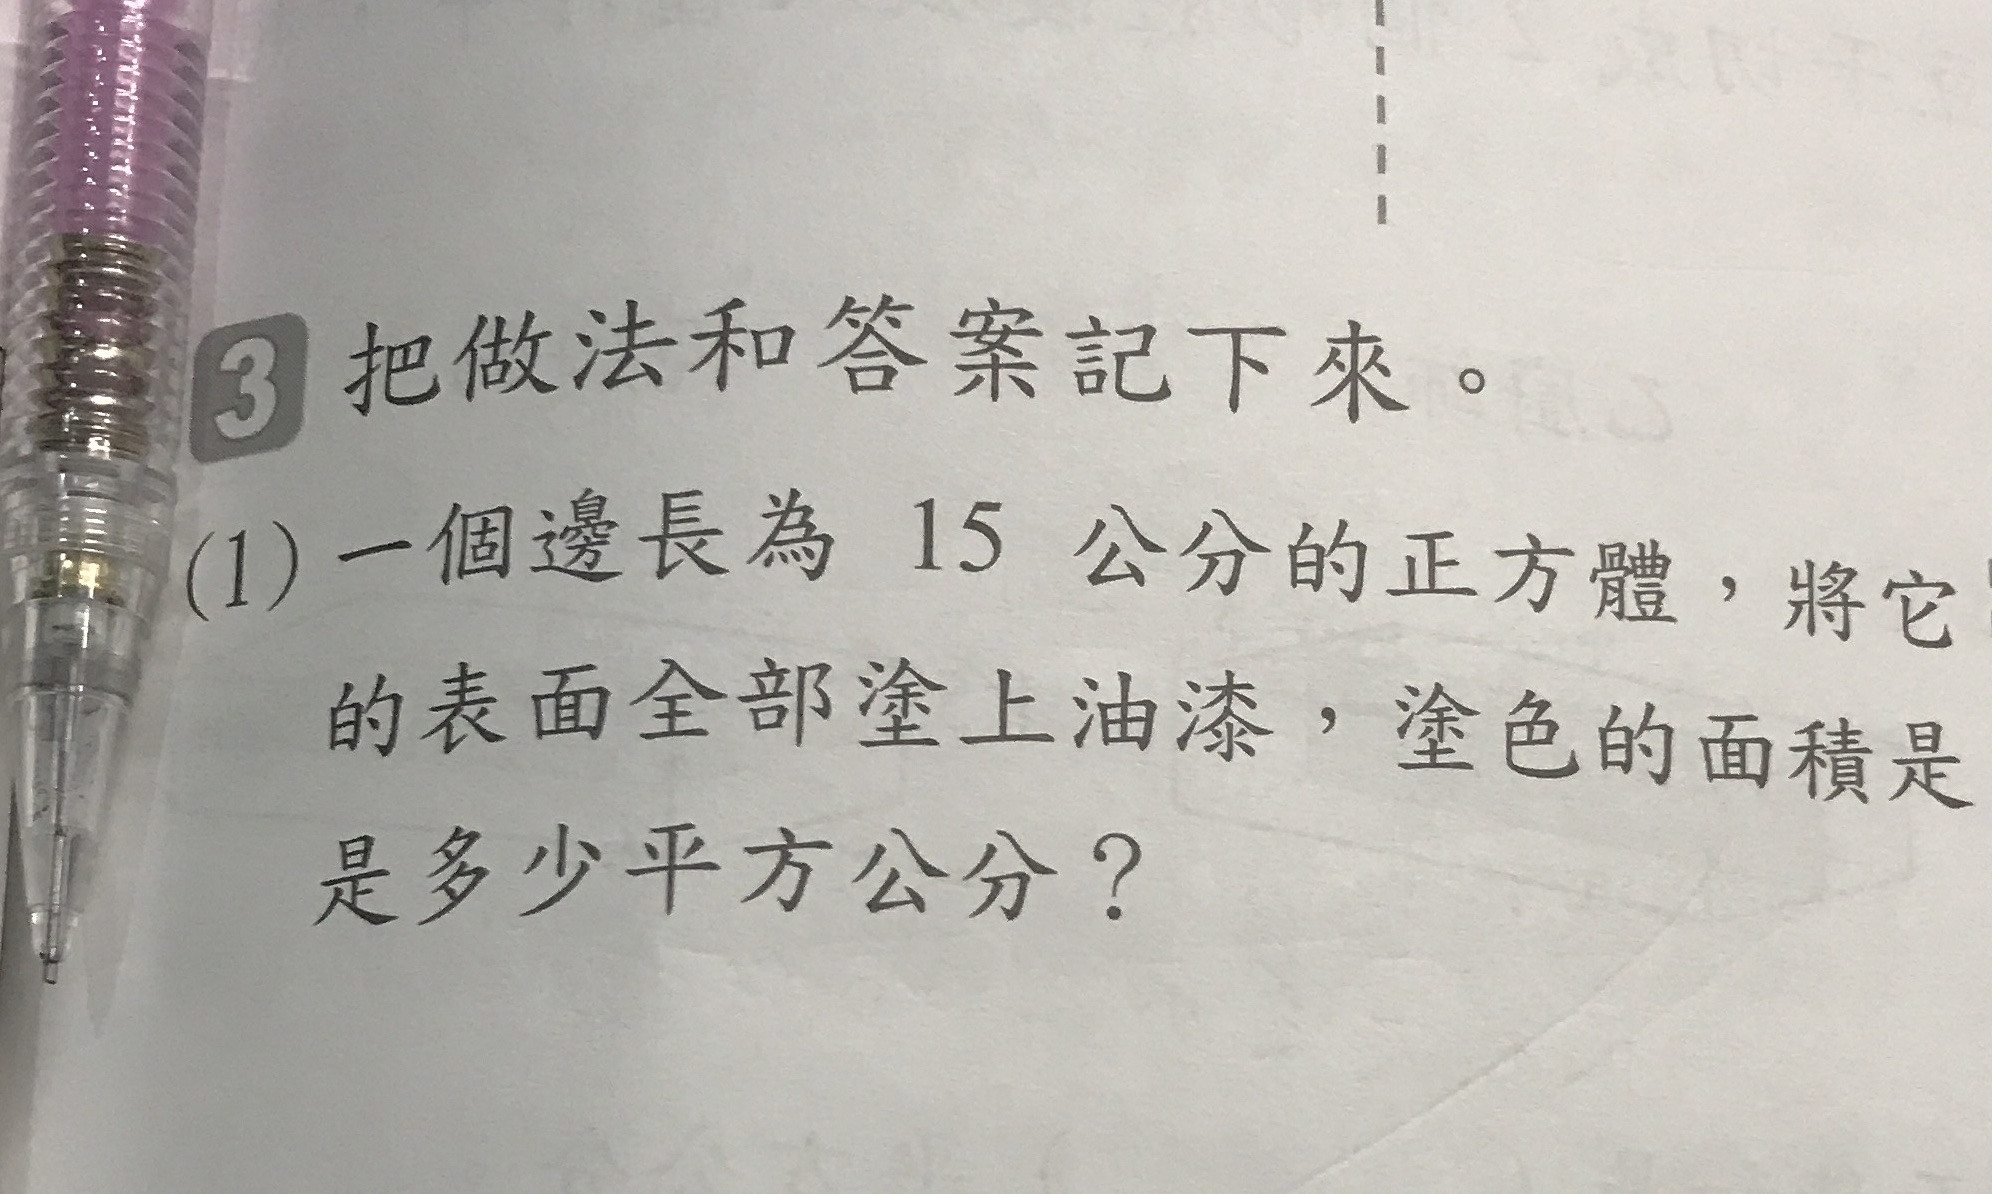 3 把做法和答案記下來。
(1) 一個邊長為 15 公分的正方體，將它
的表面全部塗上油漆，塗色的面積是
是多少平方公分？